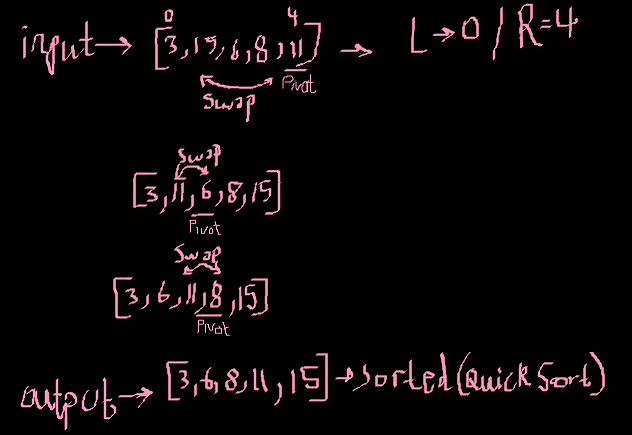 0 4
input → [3,15,6,8,11] → L→0 / R=4
Pivot
Swap
Swap
[3,11,6,8,15]
Pivot
Swap
[3,6,11,8,15]
Pivot
output → [3,6,8,11,15] → sorted(Quick Sort)